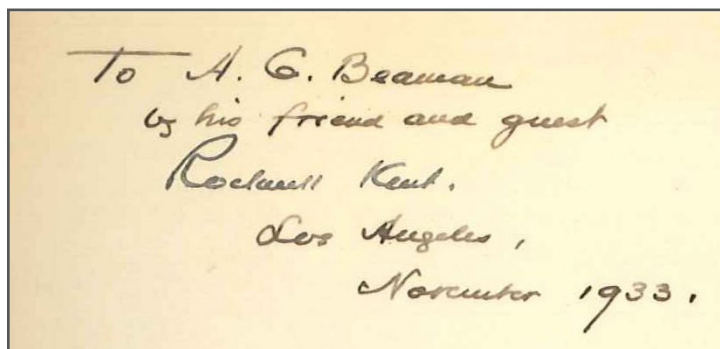 To A. G. Beaman
by his friend and guest
Rockwell Kent.
Los Angeles,
November 1933.